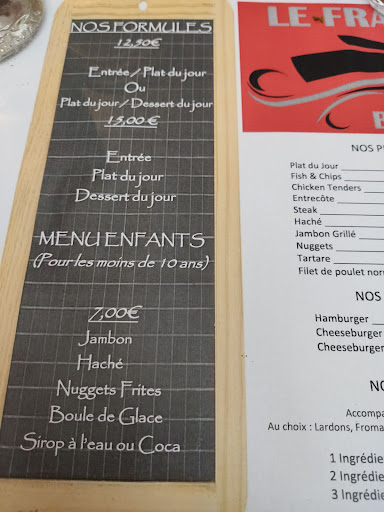 NOS FORMULES
12,50€
Entrée / Plat du jour
Ou
Plat du jour / Dessert du jour
15,00 €
Entrée
Plat du jour
Dessert du jour
MENU ENFANTS
(Pour les moins de 10 ans)
7,00€
Jambon
Haché
Nuggets Frites
Boule de Glace
Sirop à l'eau ou Coca
LE FRA
B
NOS P
Plat du Jour
Fish & Chips
Chicken Tenders
Entrecôte
Steak
Haché
Jambon Grillé
Nuggets
Tartare
Filet de poulet nor
NOS
Hamburger
Cheeseburger
Cheeseburger
NO
Accompa
Au choix : Lardons, Froma
1 Ingrédie
2 Ingrédie
3 Ingrédie